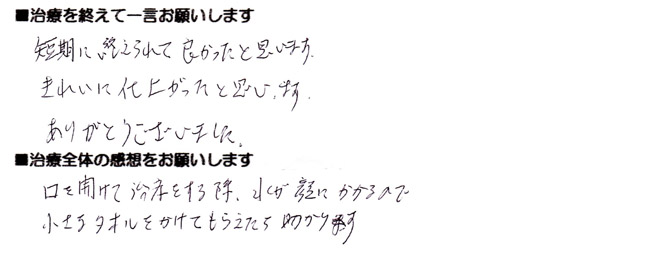 ■治療を終えて一言お願いします
短期に終えられて良かったと思います.
きれいに仕上がったと思います.
ありがとうございました。
■治療全体の感想をお願いします
口を開けて治療をする際、水が顔にかかるので
小さなタオルをかけてもらえたら助かります